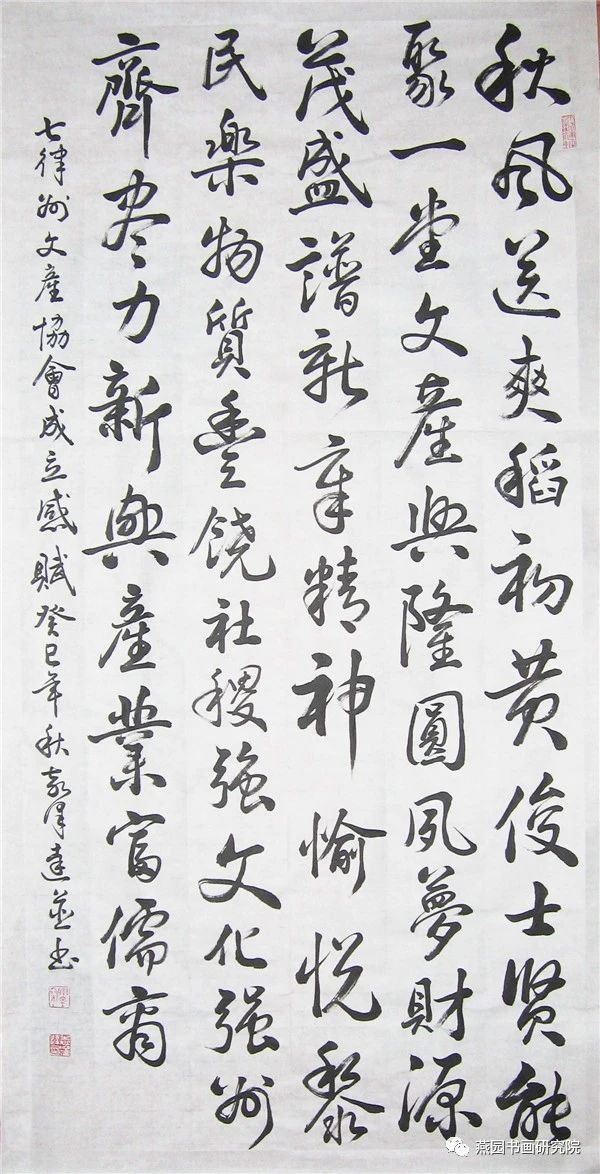 秋风送爽稻初黄俊士贤能
聚一堂文産興隆圓夙夢財源
茂盛譜新章精神愉悦黎
民樂物質豊饶社稷强文化强州
齊尽力新興産業富儒商
七律州文産協會成立感賦癸巳年秋達並书
燕园书画研究院